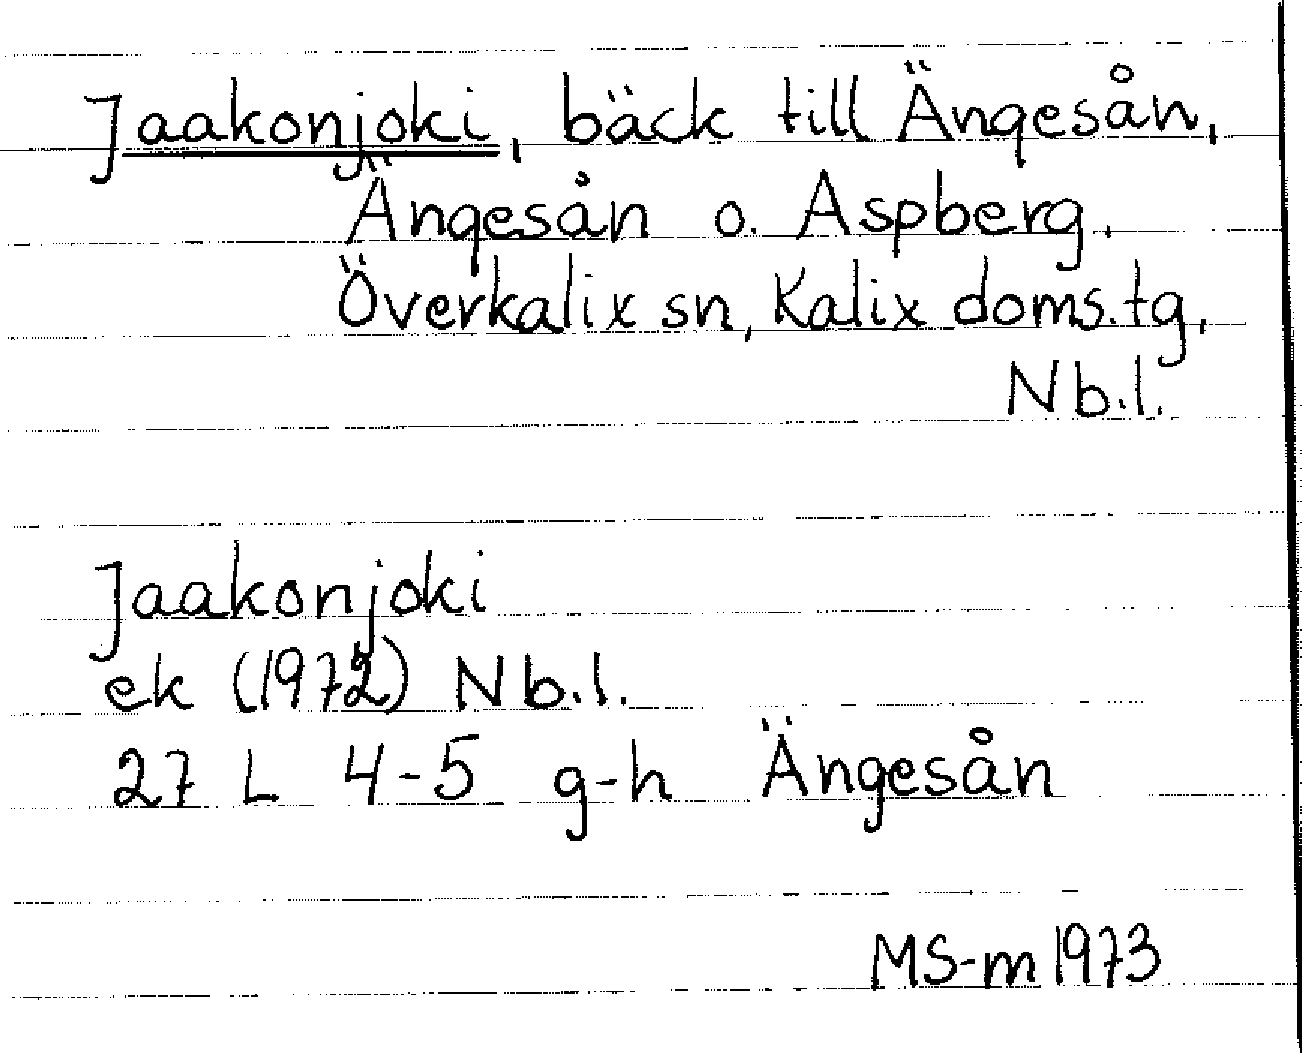 Jaakonjoki, bäck till Ängesån,
Ängesån o. Aspberg,
Överkalix sn, Kalix doms.tg,
Nb.l.
Jaakonjoki
ek (1972) Nb.l.
27 L 4-5 g-h Ängesån
MS-m 1973